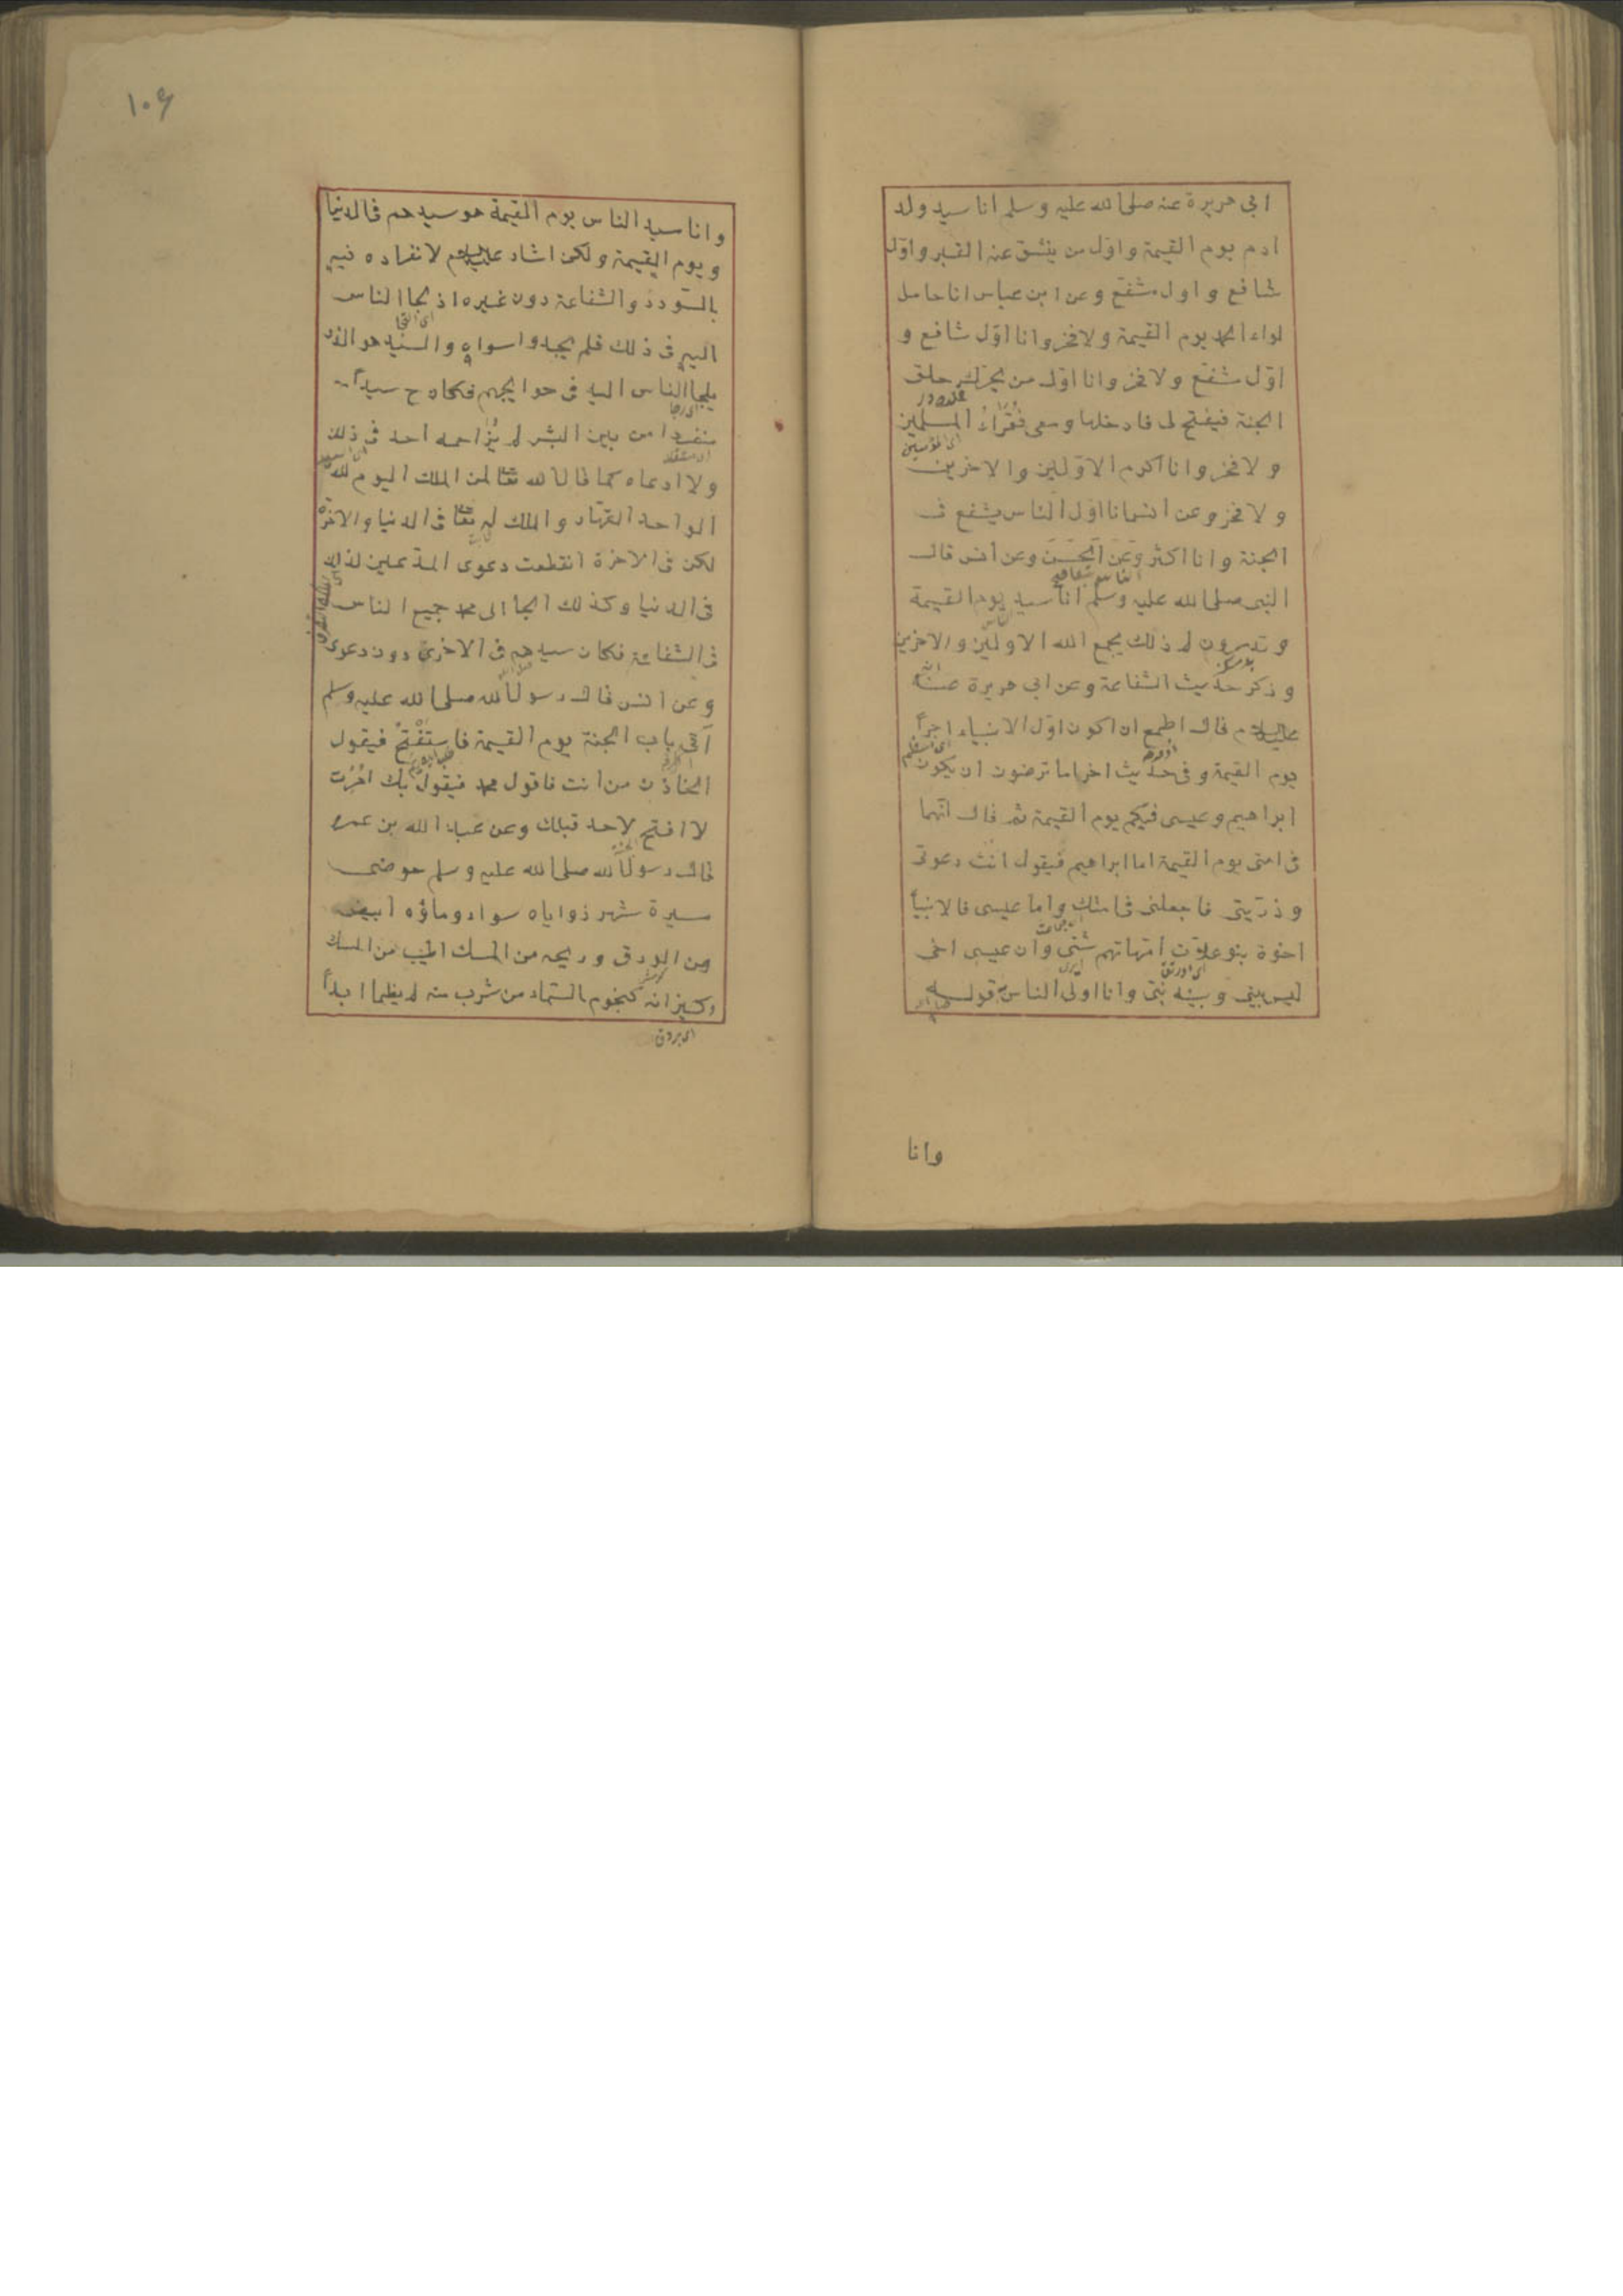 ابى هريرة عنه صلى الله عليه وسلم انا سيد ولد
ادم يوم القيمة واوّل من ينشق عنه القبر واوّل
شافع واول مشفع وعن ابن عباس انا حامل
لواء الحمد يوم القيمة ولا فخر وانا اوّل شافع و
اوّل مشفع ولا فخر وانا اوّل من يحرّك حلق
الجنة فيفتح لى فادخلها ومعى فُقَرَاءُ المسلمين
اى المؤمنين
ولا فخر وانا اكرم الاوّلين والاخرين
ولا فخر وعن انس انا اوّل الناس يشفع فى
الجنة وانا اكثر وعن الحسن وعن انس قال
الناس تبعا
النبى صلى الله عليه وسلم انا سيد يوم القيمة
الناس
وتدرون لم ذلك يجمع الله الاولين والاخرين
وذكر حديث الشفاعة وعن ابى هريرة عنه
عليه السلام قال اطمع ان اكون اوّل الانبياء اجراً
يوم القيمة وفى حديث اخر اما ترضون ان يكون
ابراهيم وعيسى فيكم يوم القيمة ثم قال انّهما
فى امتى يوم القيمة اما ابراهيم فيقول انت دعوتى
وذرّيتى فاجعلنى فى امتك واما عيسى فالانبيا
اخوة بنو علاّت امّهاتهم شتى وان عيسى اخى
ليس بينى وبينه نبى وانا اولى الناس به قوله
وانا
١٠٤
وانا سيد الناس يوم القيمة هو سيدهم فى الدنيا
ويوم القيمة ولكن اشار عليه السلام لانفراده فيه
بالسودد والشفاعة دون غيره اذ لجا الناس
اى التجا
اليه فى ذلك فلم يجدوا سواه والسيد هو الذى
يلجا الناس اليه فى حوايجهم فكان ح سيداً
منفردا من بين البشر لم يُزاحمه احد فى ذلك
ولا ادعاه كما قال الله تعا لمن الملك اليوم لله
الواحد القهار والملك له تعا فى الدنيا والاخرة
لكن فى الاخرة انقطعت دعوى المدّعين لذلك
فى الدنيا وكذلك لجا الى محمد جميع الناس
فى الشفاعة فكان سيدهم فى الاخرى دون دعوى
وعن انس قال رسول الله صلى الله عليه وسلم
آتى باب الجنة يوم القيمة فاستَفْتِحُ فيقول
الخازن من انت فاقول محمد فيقول بك اُمِرْتُ
لا افتح لاحد قبلك وعن عبد الله بن عمرو
قال رسول الله صلى الله عليه وسلم حوضى
مسيرة شهر وزواياه سواء وماؤه ابيض
من الورق وريحه من المسك اطيب من المسك
وكيزانه كنجوم السماء من شرب منه لم يظما ابداً